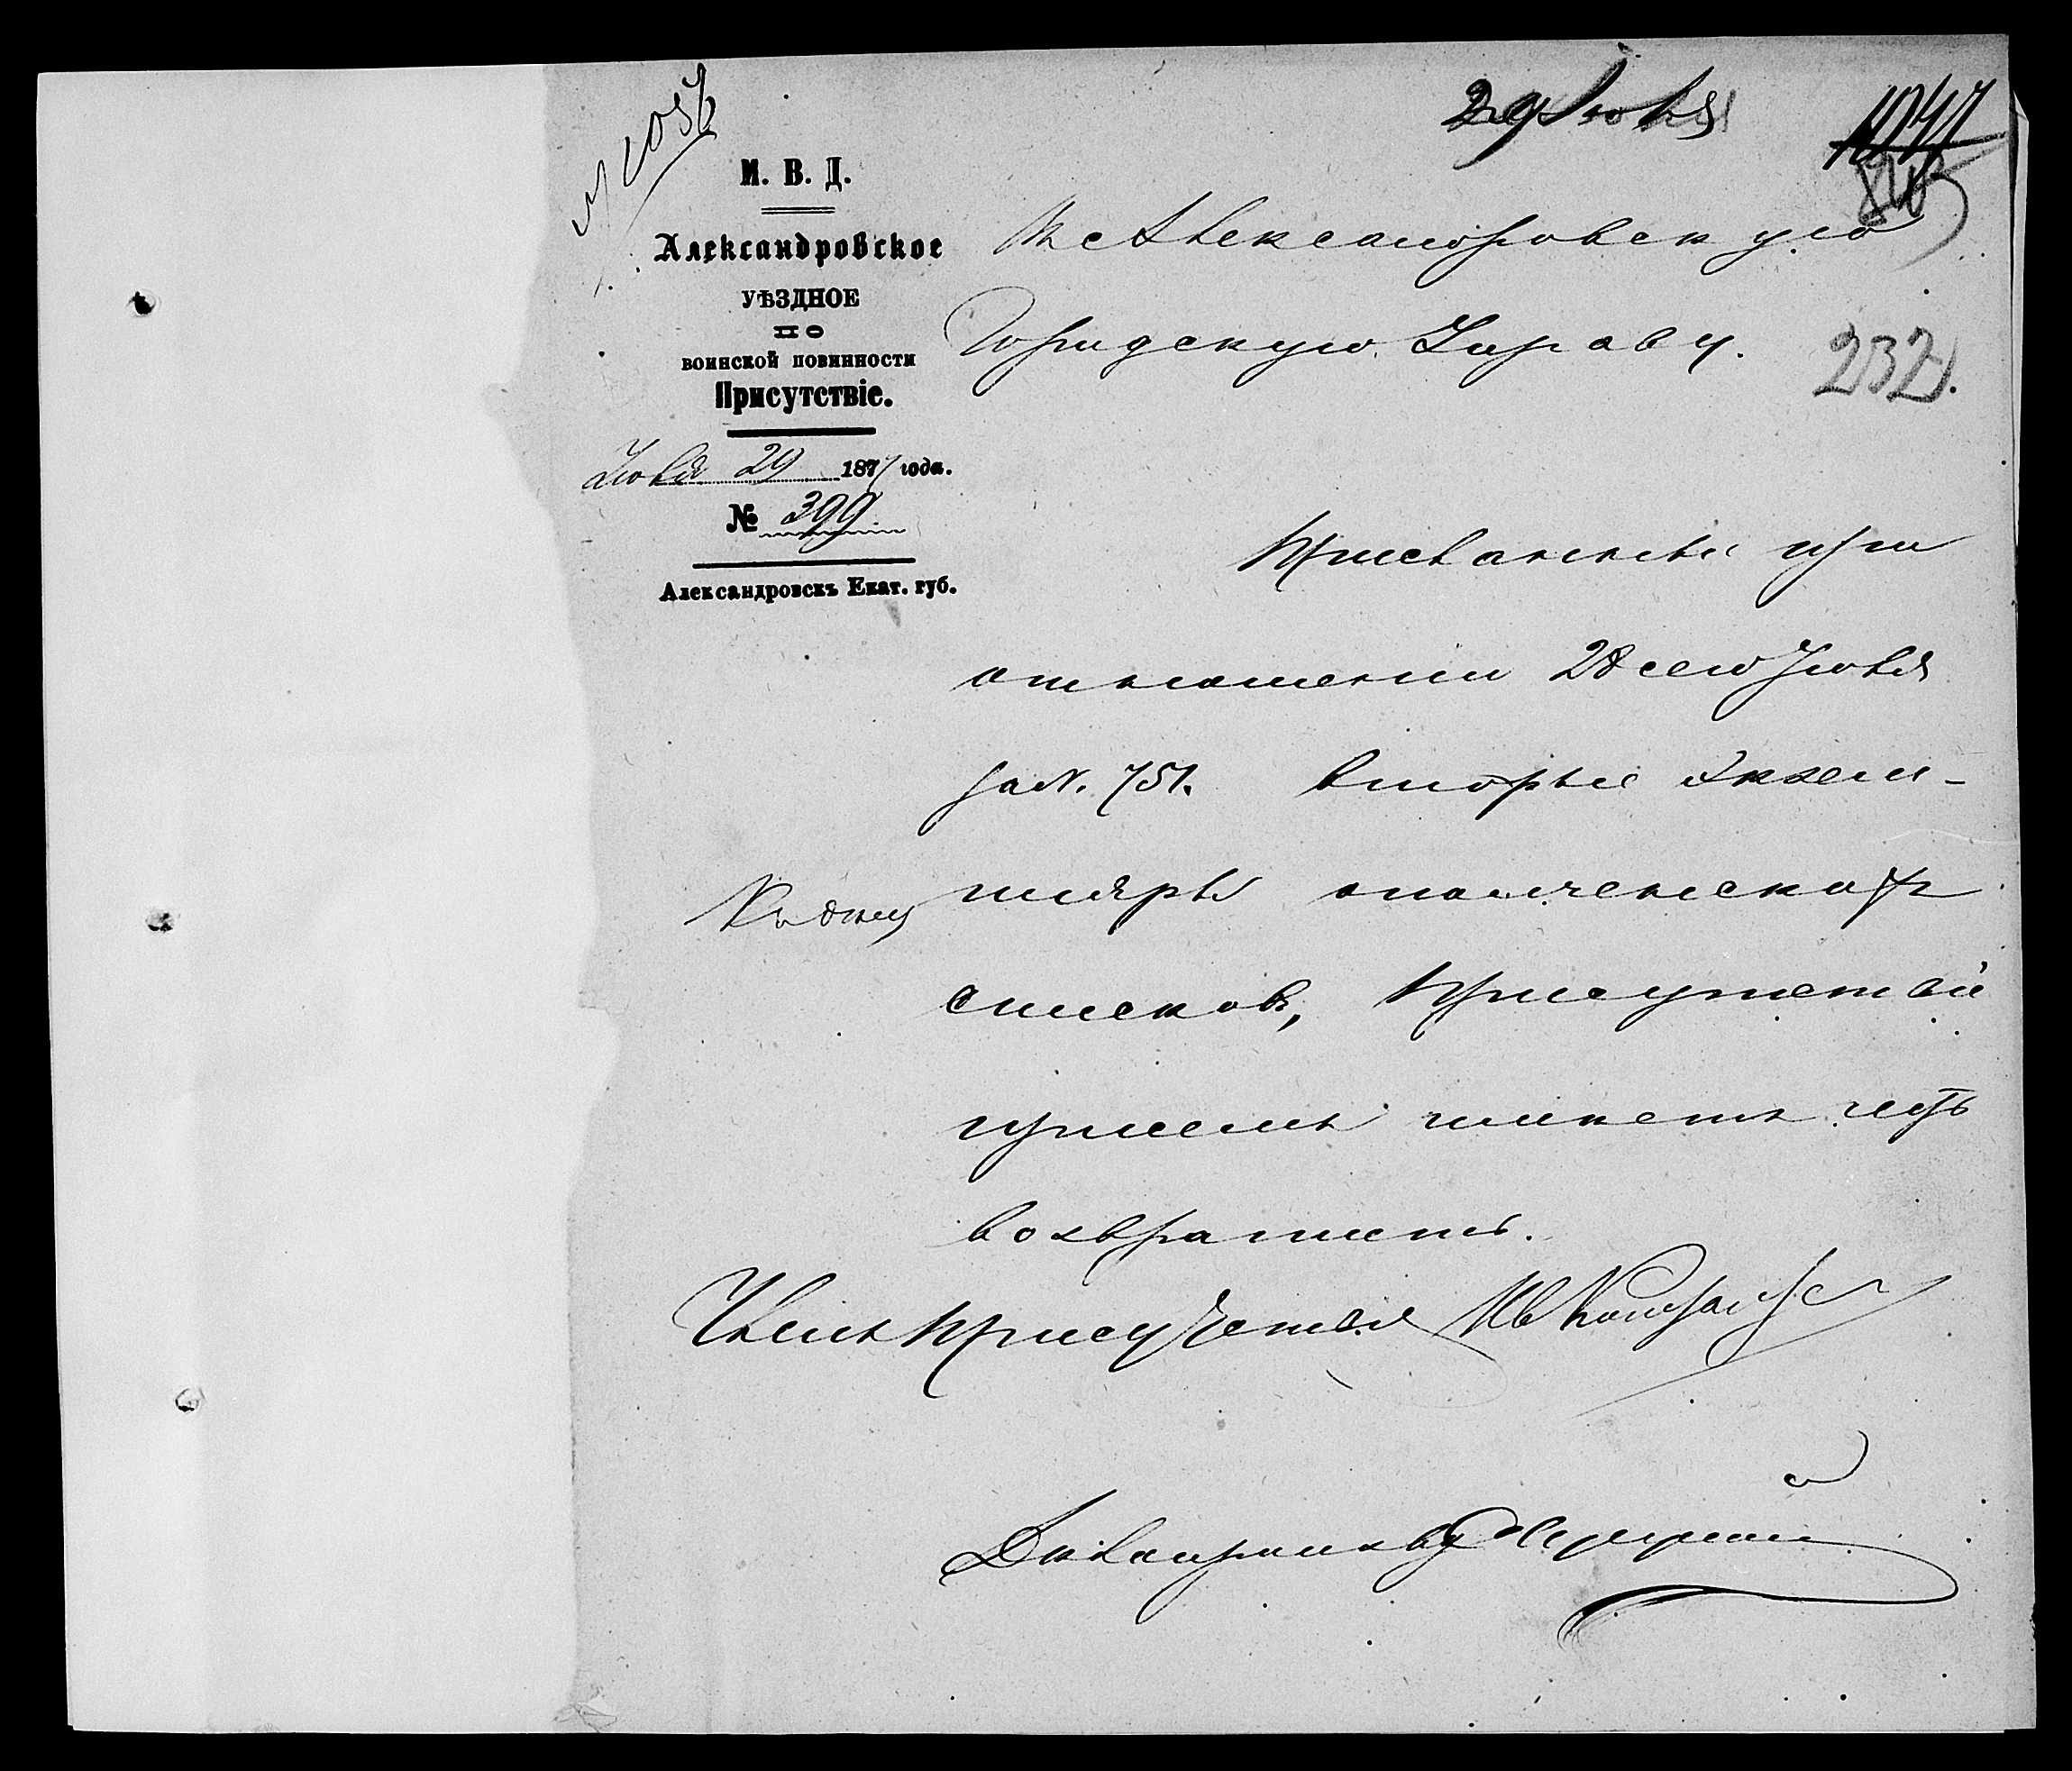 29 Іюля
№ 1056
М. В. Д.
Александровское
УѢЗДНОЕ
ПО
ВОИНСКОЙ ПОВИННОСТИ
Присутствіе.
Іюля 29 1877 года.
№ 399
Александровскъ Екат. губ.
Въ Александровскую
Городскую Управу.
232
Присланные при
отношеніи 28 сего Іюля
за N. 751. вторые экзем-
пляры ополченскихъ
Къ дѣлу
списковъ, Присутствіе
при семъ имѣетъ честь
возвратить.
Членъ Присутствія
Дѣлопроизводитель